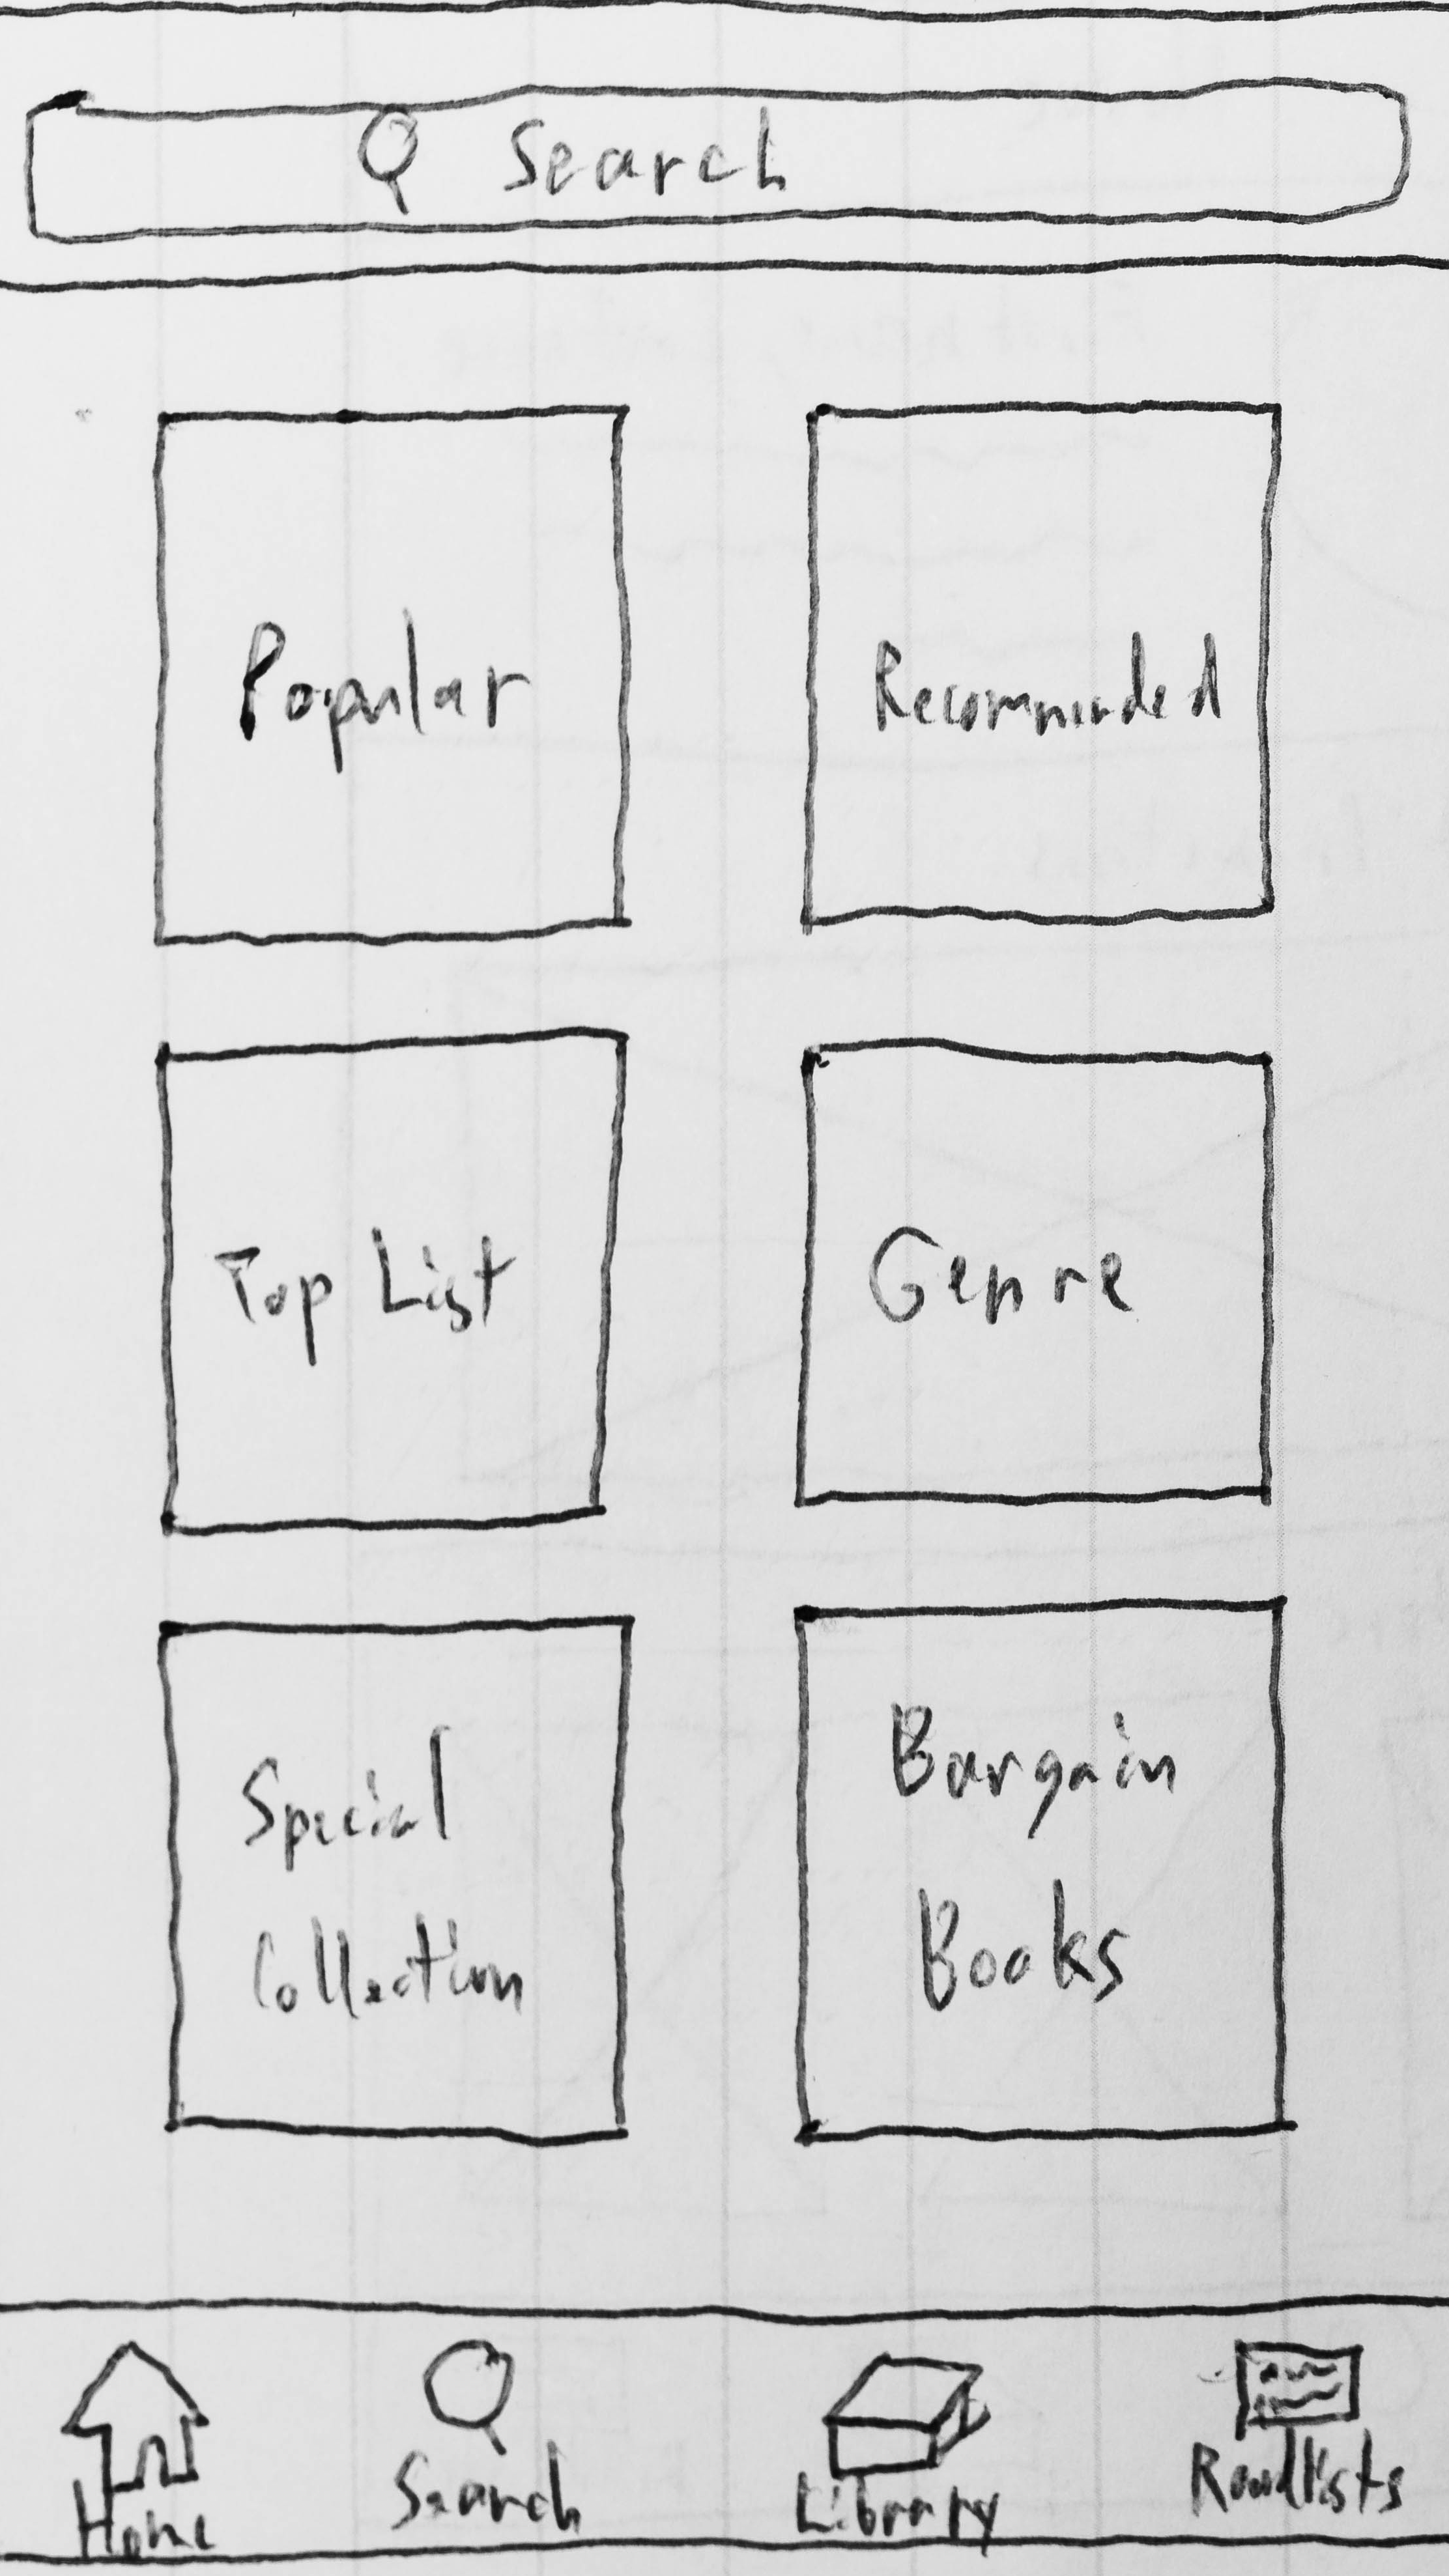 Search
Popular
Recommended
Top List
Genre
Special
Collection
Bargain
Books
Home
Search
Library
Readlists